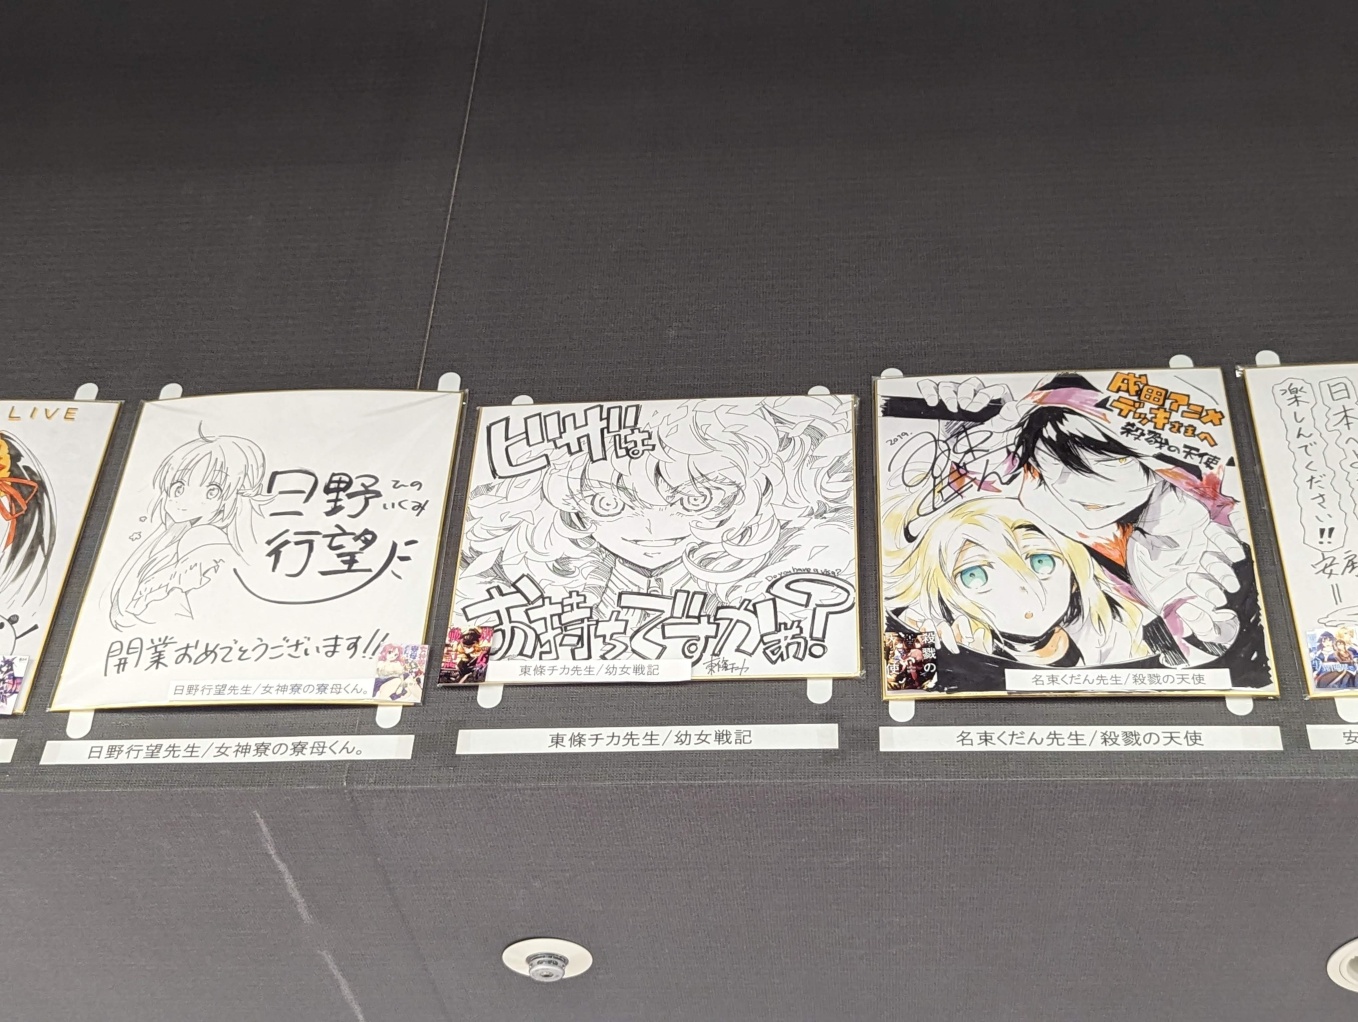 LIVE
日野
ひの
行望
いくみ
開業おめでとうございます!!
日野行望先生/女神寮の寮母くん。
日野行望先生/女神寮の寮母くん。
ビザは
Do you have a visa?
お持ちですかぁ?!
東條チカ
東條チカ先生/幼女戦記
東條チカ先生/幼女戦記
成田アニメ
デッキさまへ
殺戮の天使
2019.
殺戮の
天使
名束くだん先生/殺戮の天使
名束くだん先生/殺戮の天使
日本へ
楽しんでください!!
安